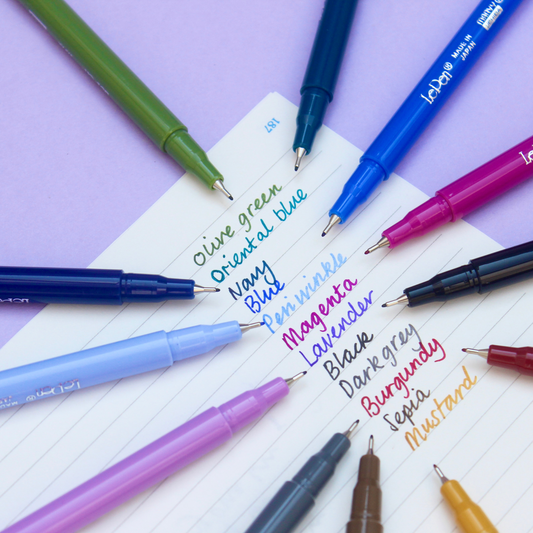 187
LePen
MADE IN JAPAN
marvy
Olive green
Oriental blue
Navy
Blue
Periwinkle
Magenta
Lavender
Black
Dark grey
Burgundy
Sepia
Mustard